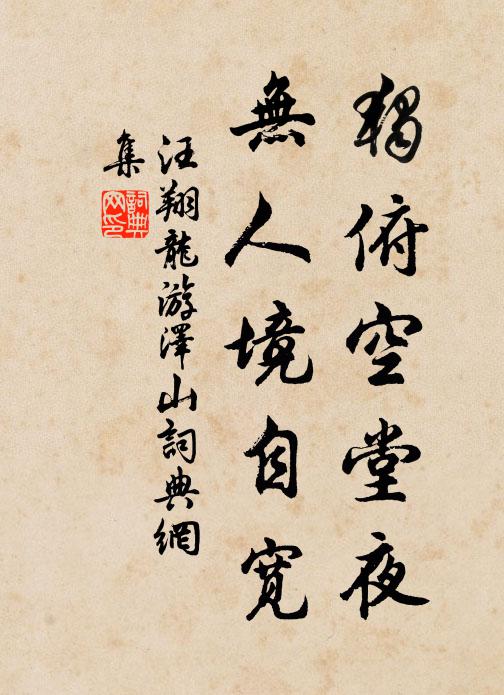 獨俯空堂夜
無人境自寬
汪翔龍游澤山詞典網
集
詞典
网印